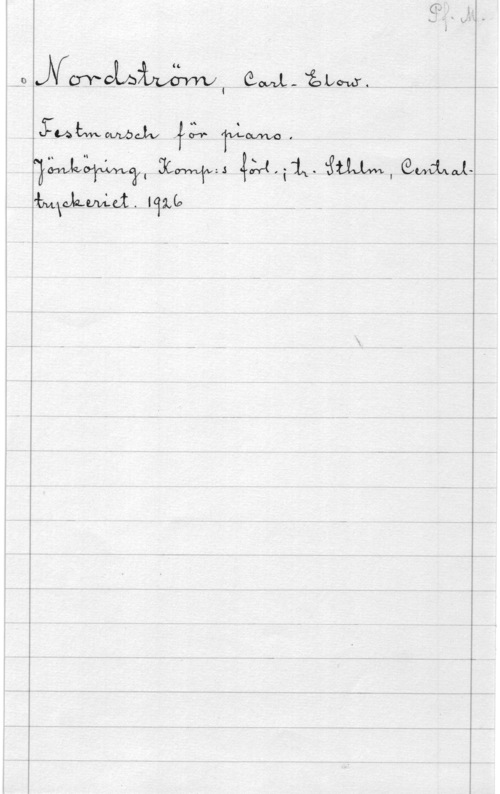 Pf. M.
Nordström, Carl-Elow.
Festmarsch för piano.
Jönköping, Komp:s förl.; tr. Sthlm, Central-
tryckeriet. 1926